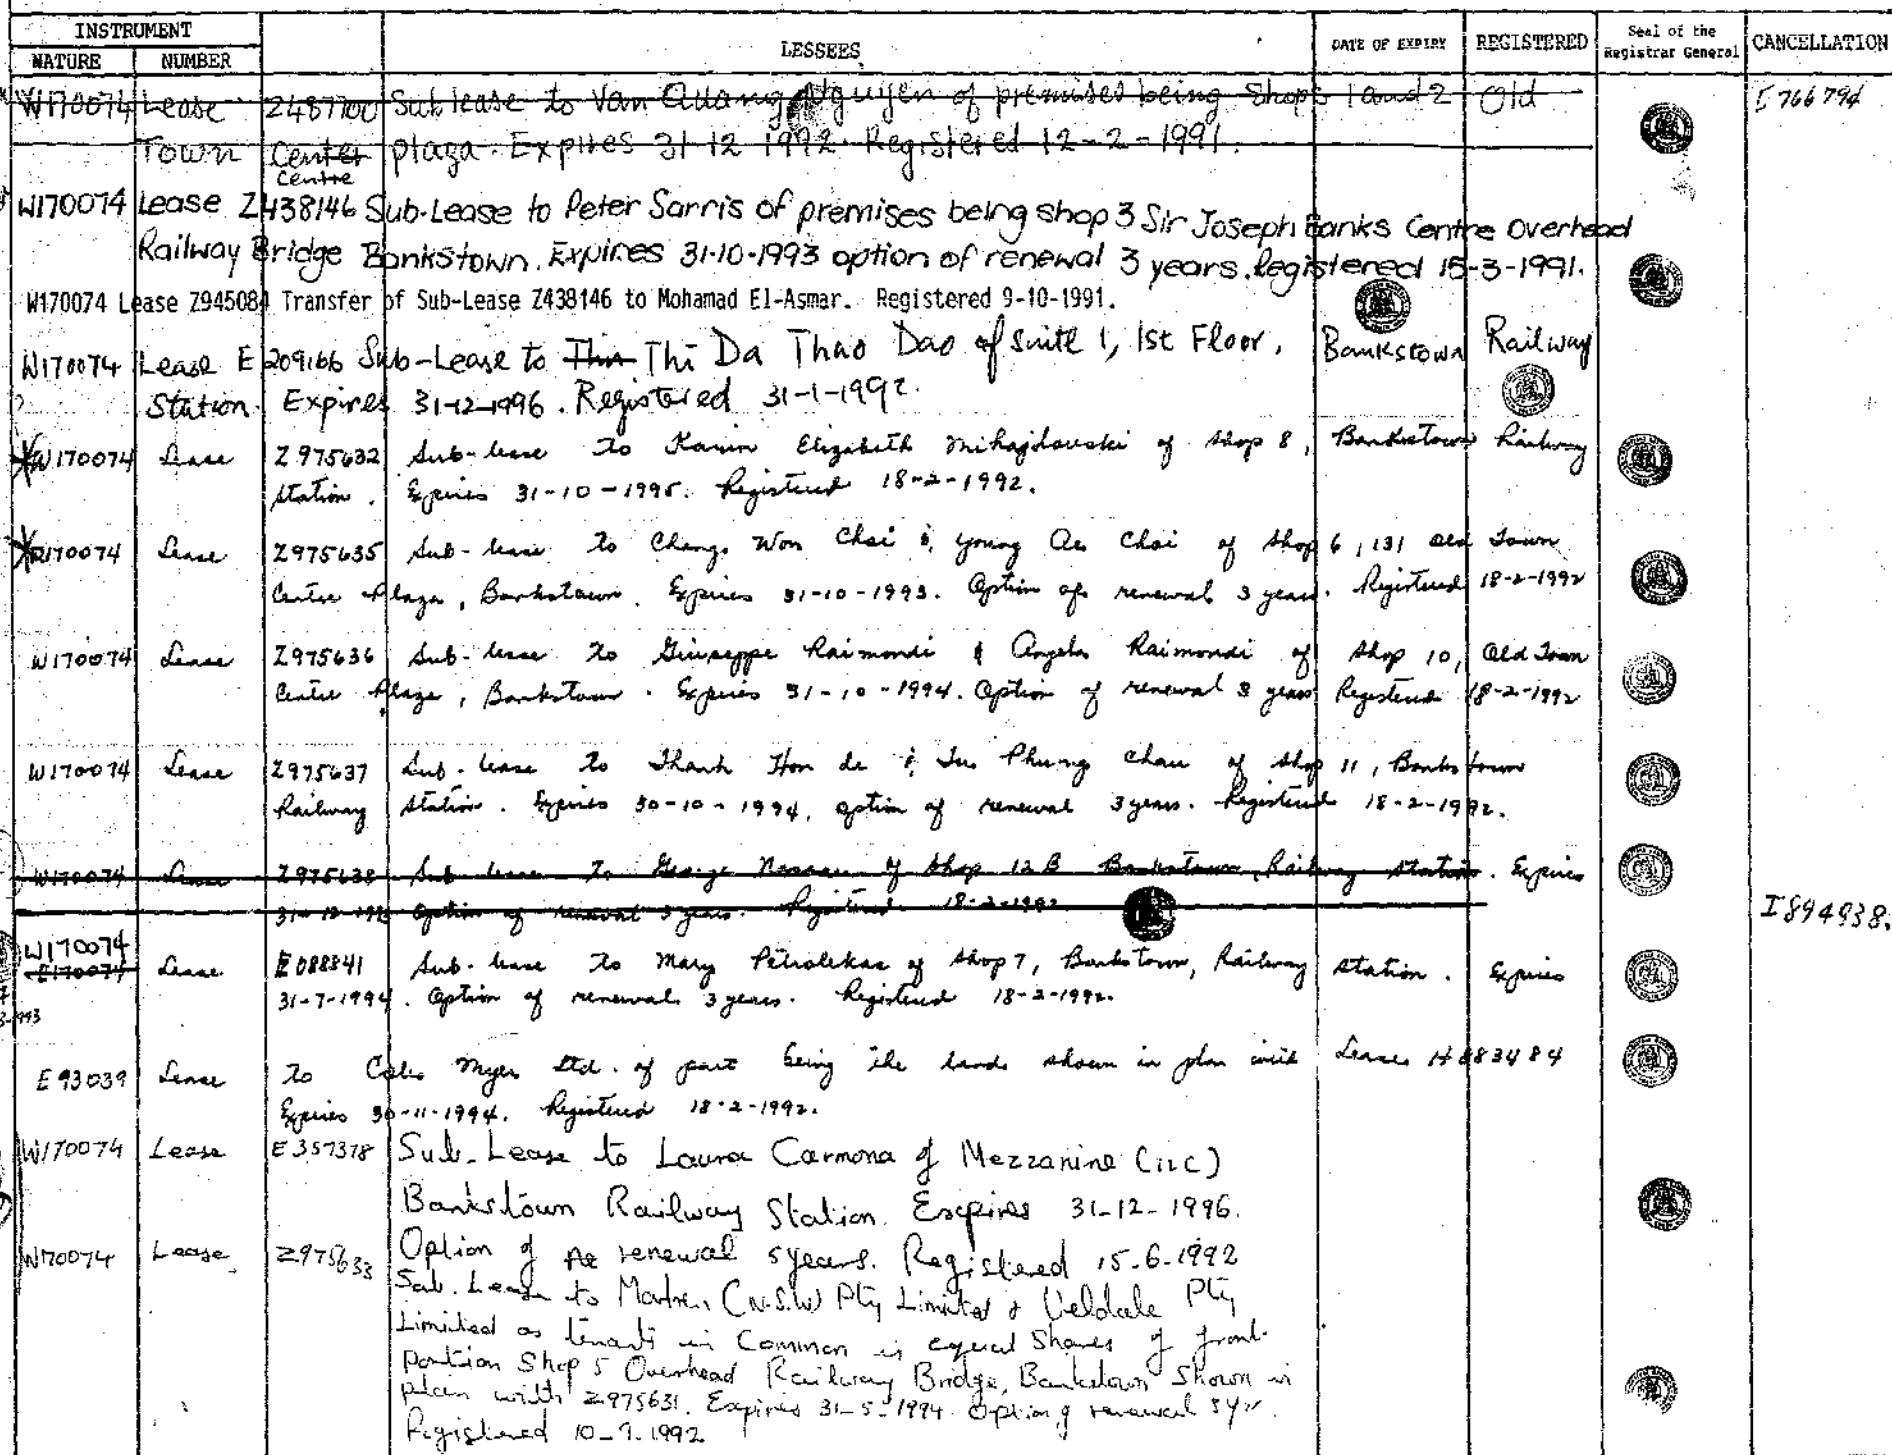 INSTRUMENT
NATURE NUMBER LESSEES DATE OF EXPIRY REGISTERED Seal of the Registrar General CANCELLATION
W170074 Lease Z487700 Sub lease to Van Nguyen of premises being Shops 1 and 2 Old I 766794
Town Center plaza. Expires 31 12 1992. Registered 12-2-1991.
Centre
W170074 Lease Z438146 Sub-Lease to Peter Sarris of premises being shop 3 Sir Joseph Banks Centre Overhead
Railway Bridge Bankstown. Expires 31-10-1993 option of renewal 3 years. Registered 15-3-1991.
W170074 Lease Z945084 Transfer of Sub-Lease Z438146 to Mohamad El-Asmar. Registered 9-10-1991.
W170074 Lease E209166 Sub-Lease to Thi Da Thao Dao of Suite 1, 1st Floor, Bankstown Railway
Station. Expires 31-12-1996. Registered 31-1-1992.
W170074 Lease Z975632 Sub-lease to Elizabeth of Shop 8, Bankstown Railway
Station. Expires 31-10-1995. Registered 18-2-1992.
W170074 Lease Z975635 Sub-lease to Chang Won Choi & Young Ae Choi of Shop 6, 131 Old Town
Centre Plaza, Bankstown. Expires 31-10-1993. Option of renewal 3 years. Registered 18-2-1992
W170074 Lease Z975636 Sub-lease to Giuseppe Raimondi & Angela Raimondi of Shop 10, Old Town
Centre Plaza, Bankstown. Expires 31-10-1994. Option of renewal 3 years Registered 18-2-1992
W170074 Lease Z975637 Sub-lease to Thanh Hon & Phung Chau of Shop 11, Bankstown
Railway Station. Expires 30-10-1994, option of renewal 3 years. Registered 18-2-1992.
W170074 Lease Z975638 Sub lease to George of Shop 12B Bankstown, Railway Station. Expires
31-12-199 Option of renewal 3 years. Registered 18-2-1992 I894938.
W170074
E170074 Lease E088841 Sub-lease to Mary of Shop 7, Bankstown, Railway Station. Expires
31-7-1994. Option of renewal 3 years. Registered 18-2-1992.
E93039 Lease to Coles Myer Ltd. of part being the lands shown in plan with Lease H883484
Expires 30-11-1994. Registered 18-2-1992.
W170074 Lease E357378 Sub-Lease to Laura Carmona of Mezzanine (12C)
Bankstown Railway Station. Expires 31-12-1996.
Option of renewal 5 years. Registered 15.6.1992
W170074 Lease Z975633
Sub. Lease to (N.S.W) Pty Limited & Veldale Pty
Limited as tenants in Common in equal Shares of front
portion Shop 5 Overhead Railway Bridge, Bankstown Shown in
plan with Z975631. Expires 31-5-1994. Option of renewal 5yr.
Registered 10-9-1992